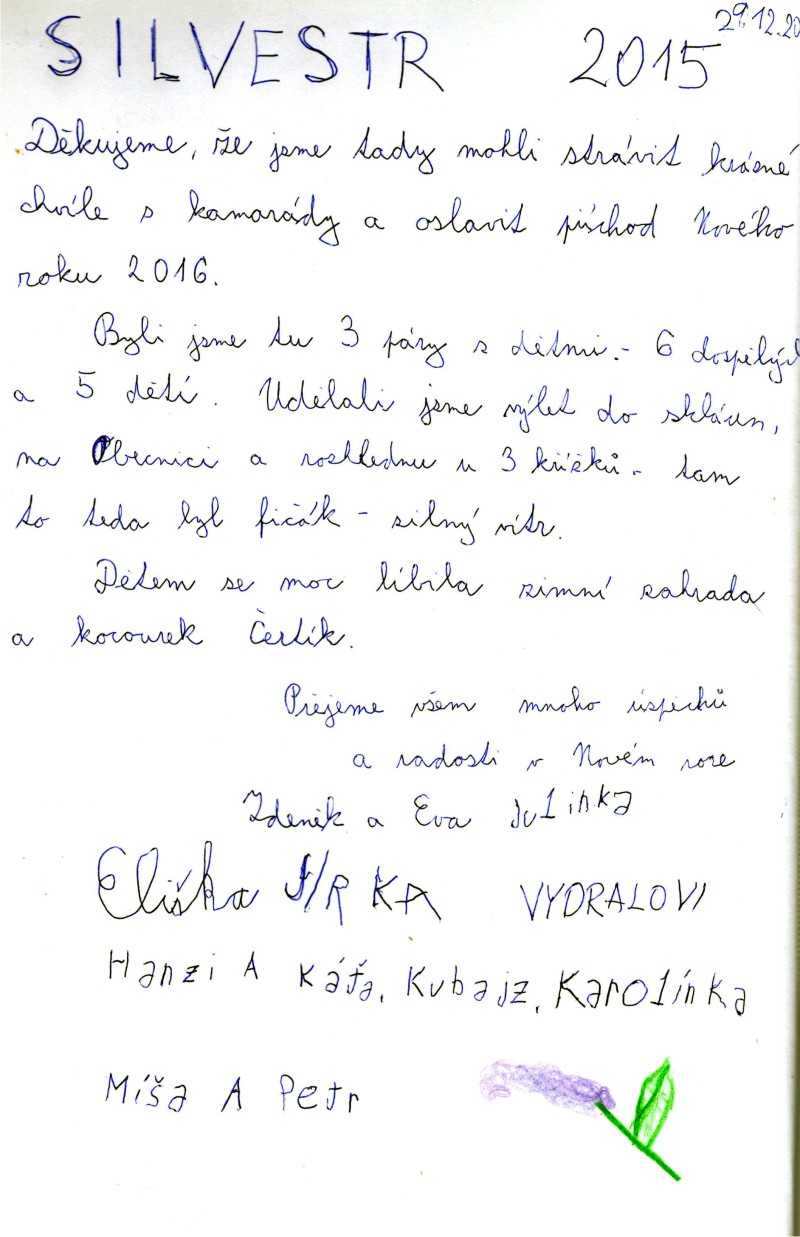 29.12.20
SILVESTR 2015
Děkujeme, že jsme tady mohli strávit krásné
chvíle s kamarády a oslavit příchod Nového
roku 2016.
Byli jsme tu 3 páry s dětmi - 6 dospělých
a 5 dětí. Udělali jsme výlet do skláren,
na Obecnici a rozhlednu u 3 křížků - tam
to teda byl fičák - silný vítr.
Dětem se moc líbila zimní zahrada
a kocourek Čertík.
Přejeme všem mnoho úspěchů
a radosti v Novém roce
Zdeněk a Eva Julinka
Eliška JIRKA VYDRALOVI
Hanzi A Káťa, Kubajz, Karolínka
Míša A Petr